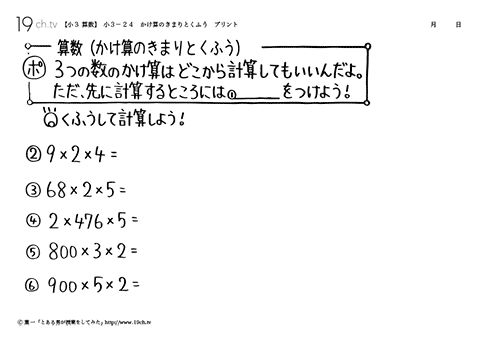 19ch.tv 【小3 算数】 小3－24 かけ算のきまりとくふう プリント 月 日
算数 (かけ算のきまりとくふう)
ポ 3つの数のかけ算はどこから計算してもいいんだよ。
ただ、先に計算するところには① をつけよう!
くふうして計算しよう!
② 9×2×4=
③ 68×2×5=
④ 2×476×5=
⑤ 800×3×2=
⑥ 900×5×2=
© 葉一「とある男が授業をしてみた」http://www.19ch.tv